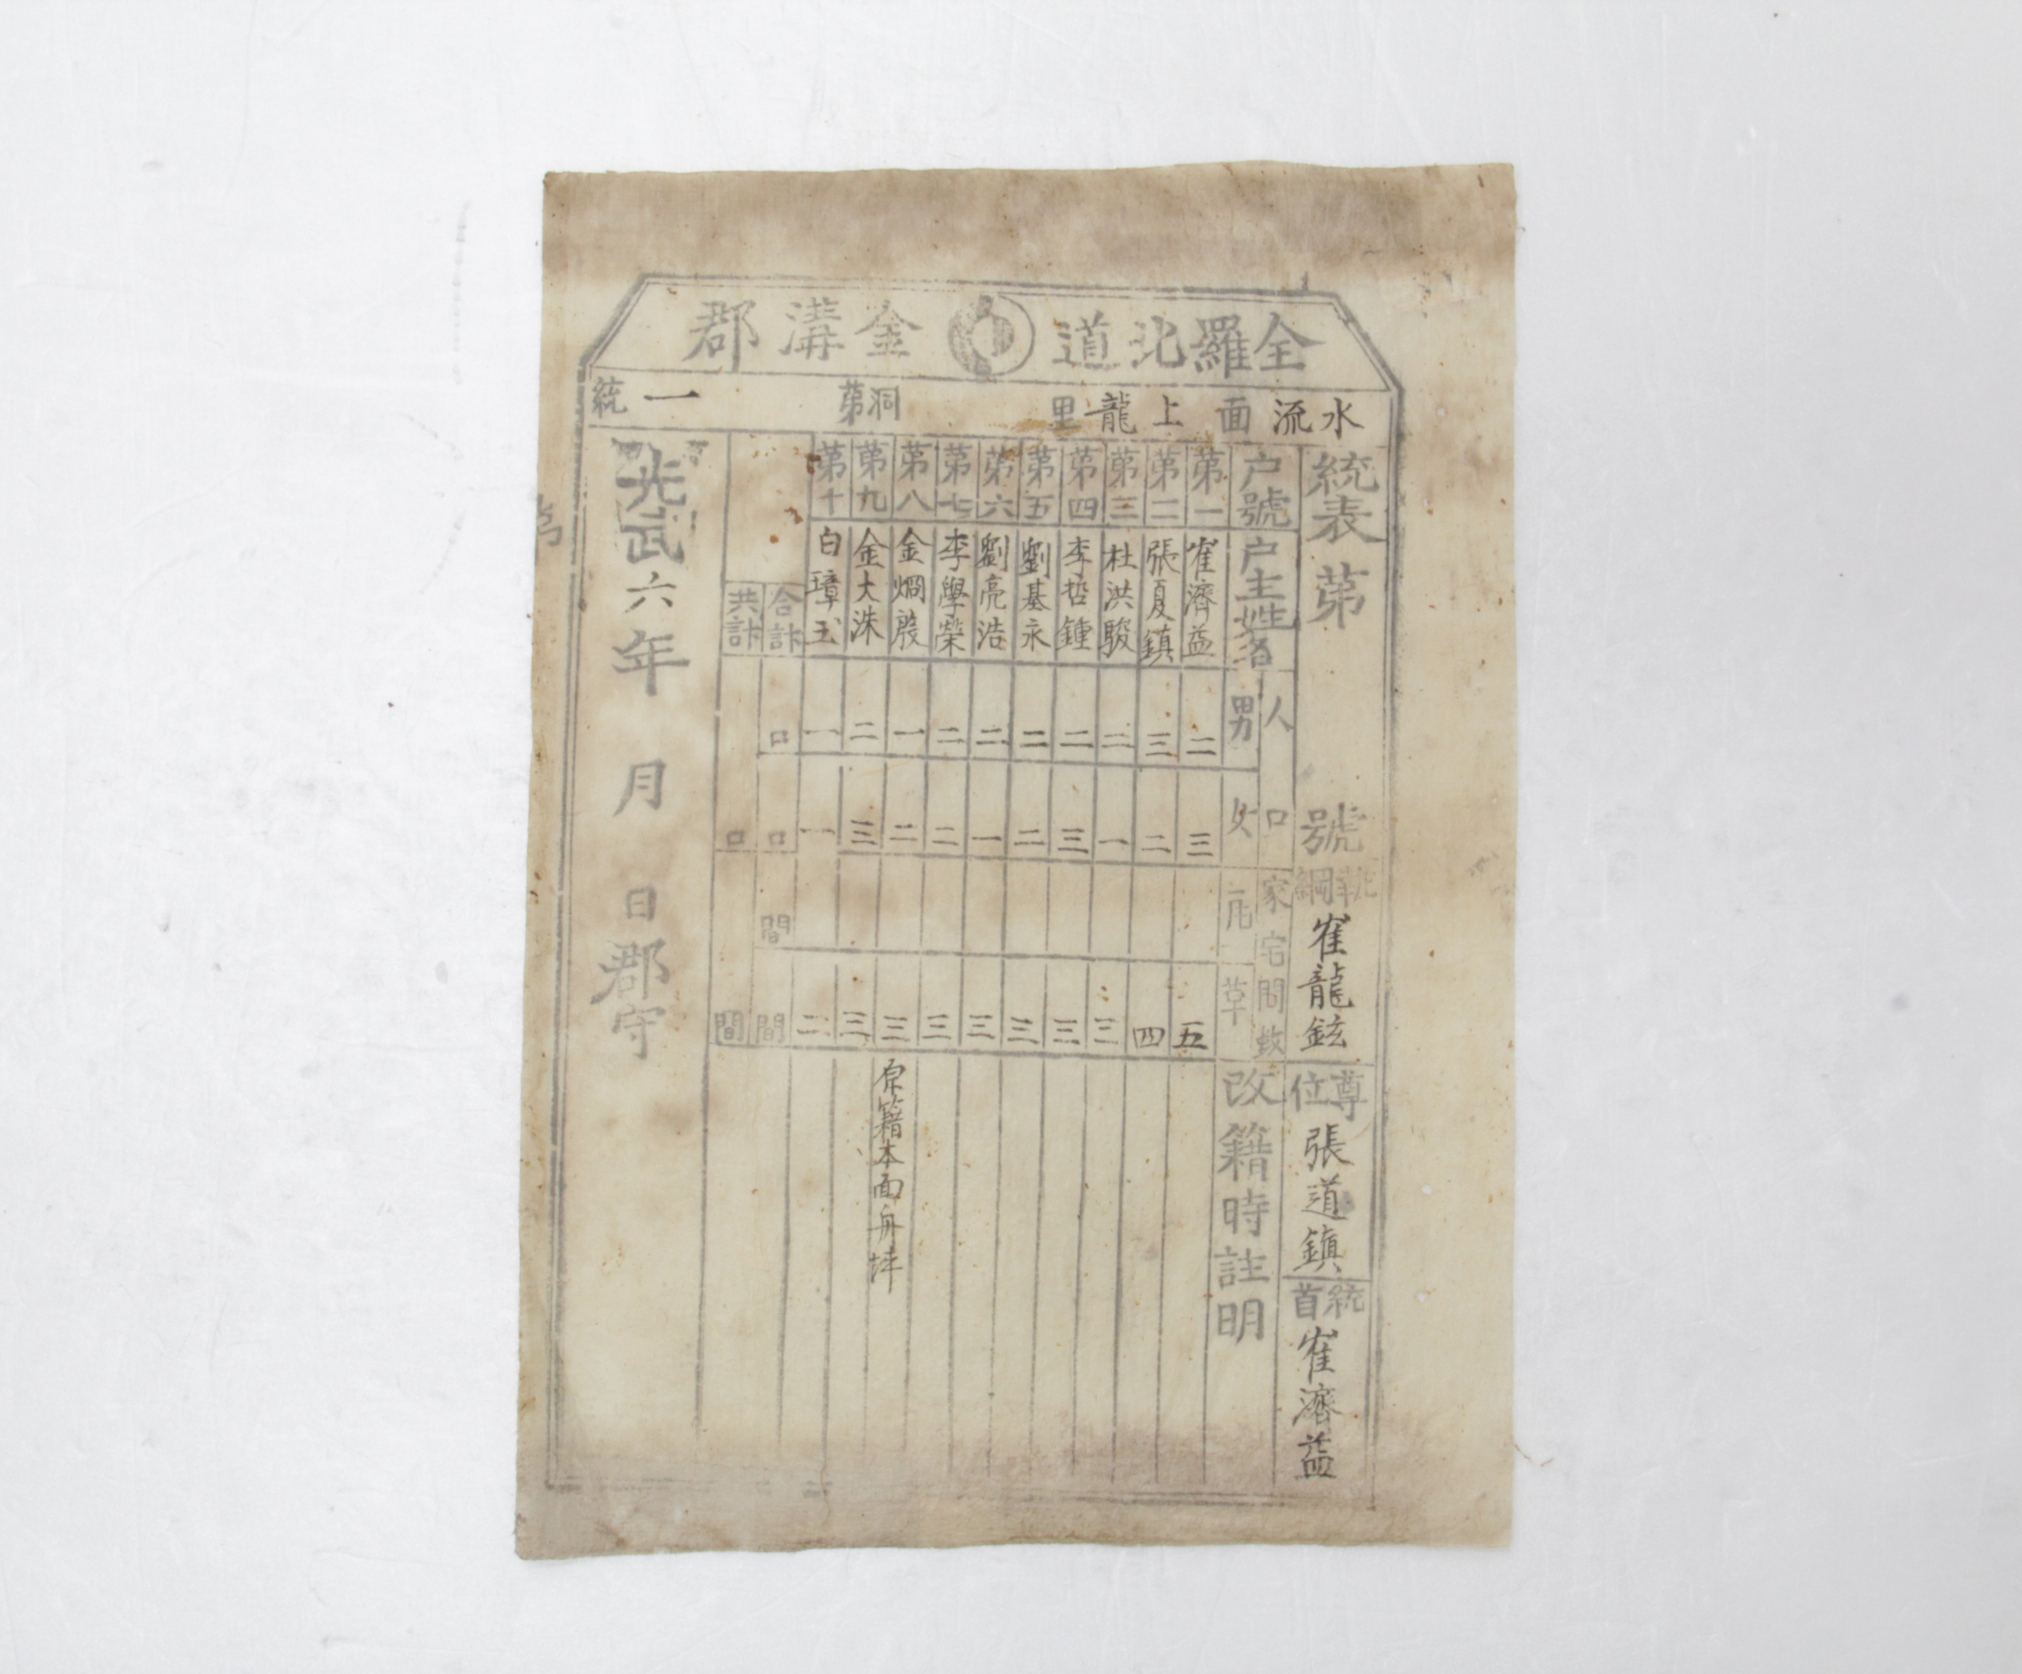 全羅北道 金溝郡
水流面 上龍里 洞第一統
統表第 號
執綱 崔龍鉉
尊位 張道鎮
統首 崔濟益
戶號 戶主姓名 人口 男 女 家宅間數 瓦 草 改籍時註明
第一 崔濟益 二 三 五
第二 張夏鎮 三 二 四
第三 杜洪駿 二 一 三
第四 李哲鍾 二 三 三
第五 劉基永 二 二 三
第六 劉亮浩 二 一 三
第七 李學榮 二 二 三
第八 金炯殷 一 二 三 原籍本面舟坪
第九 金大洙 二 三 三
第十 白璋玉 一 一 二
合計 口 口 間 間
共計 口 間
光武六年 月 日 郡守